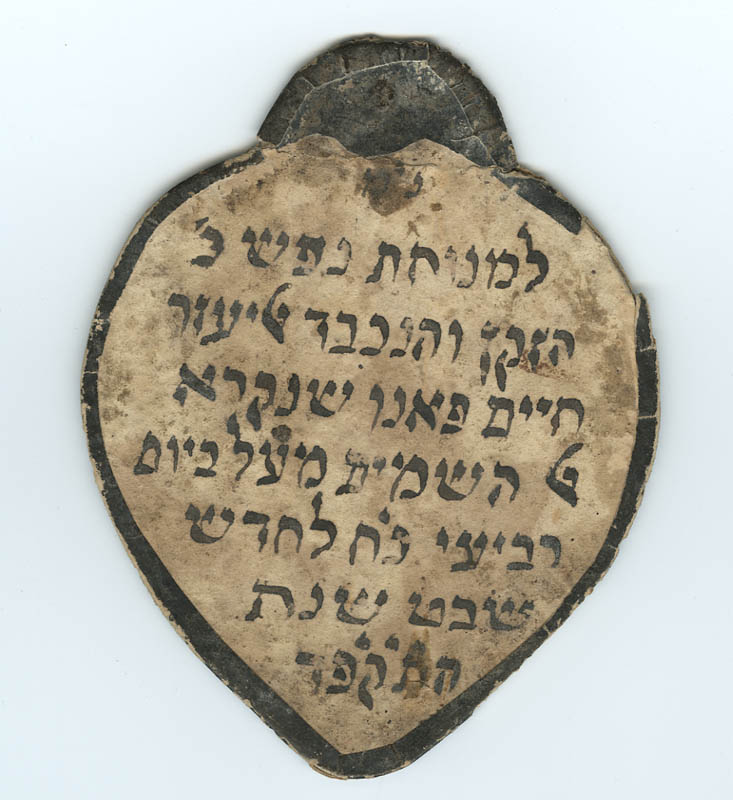 למנוחת נפש כ'
הזקן והנכבד אליעזר
חיים פאנו שנקרא
אל השמים מעל ביום
רביעי כ"ח לחדש
שבט שנת
התקפד